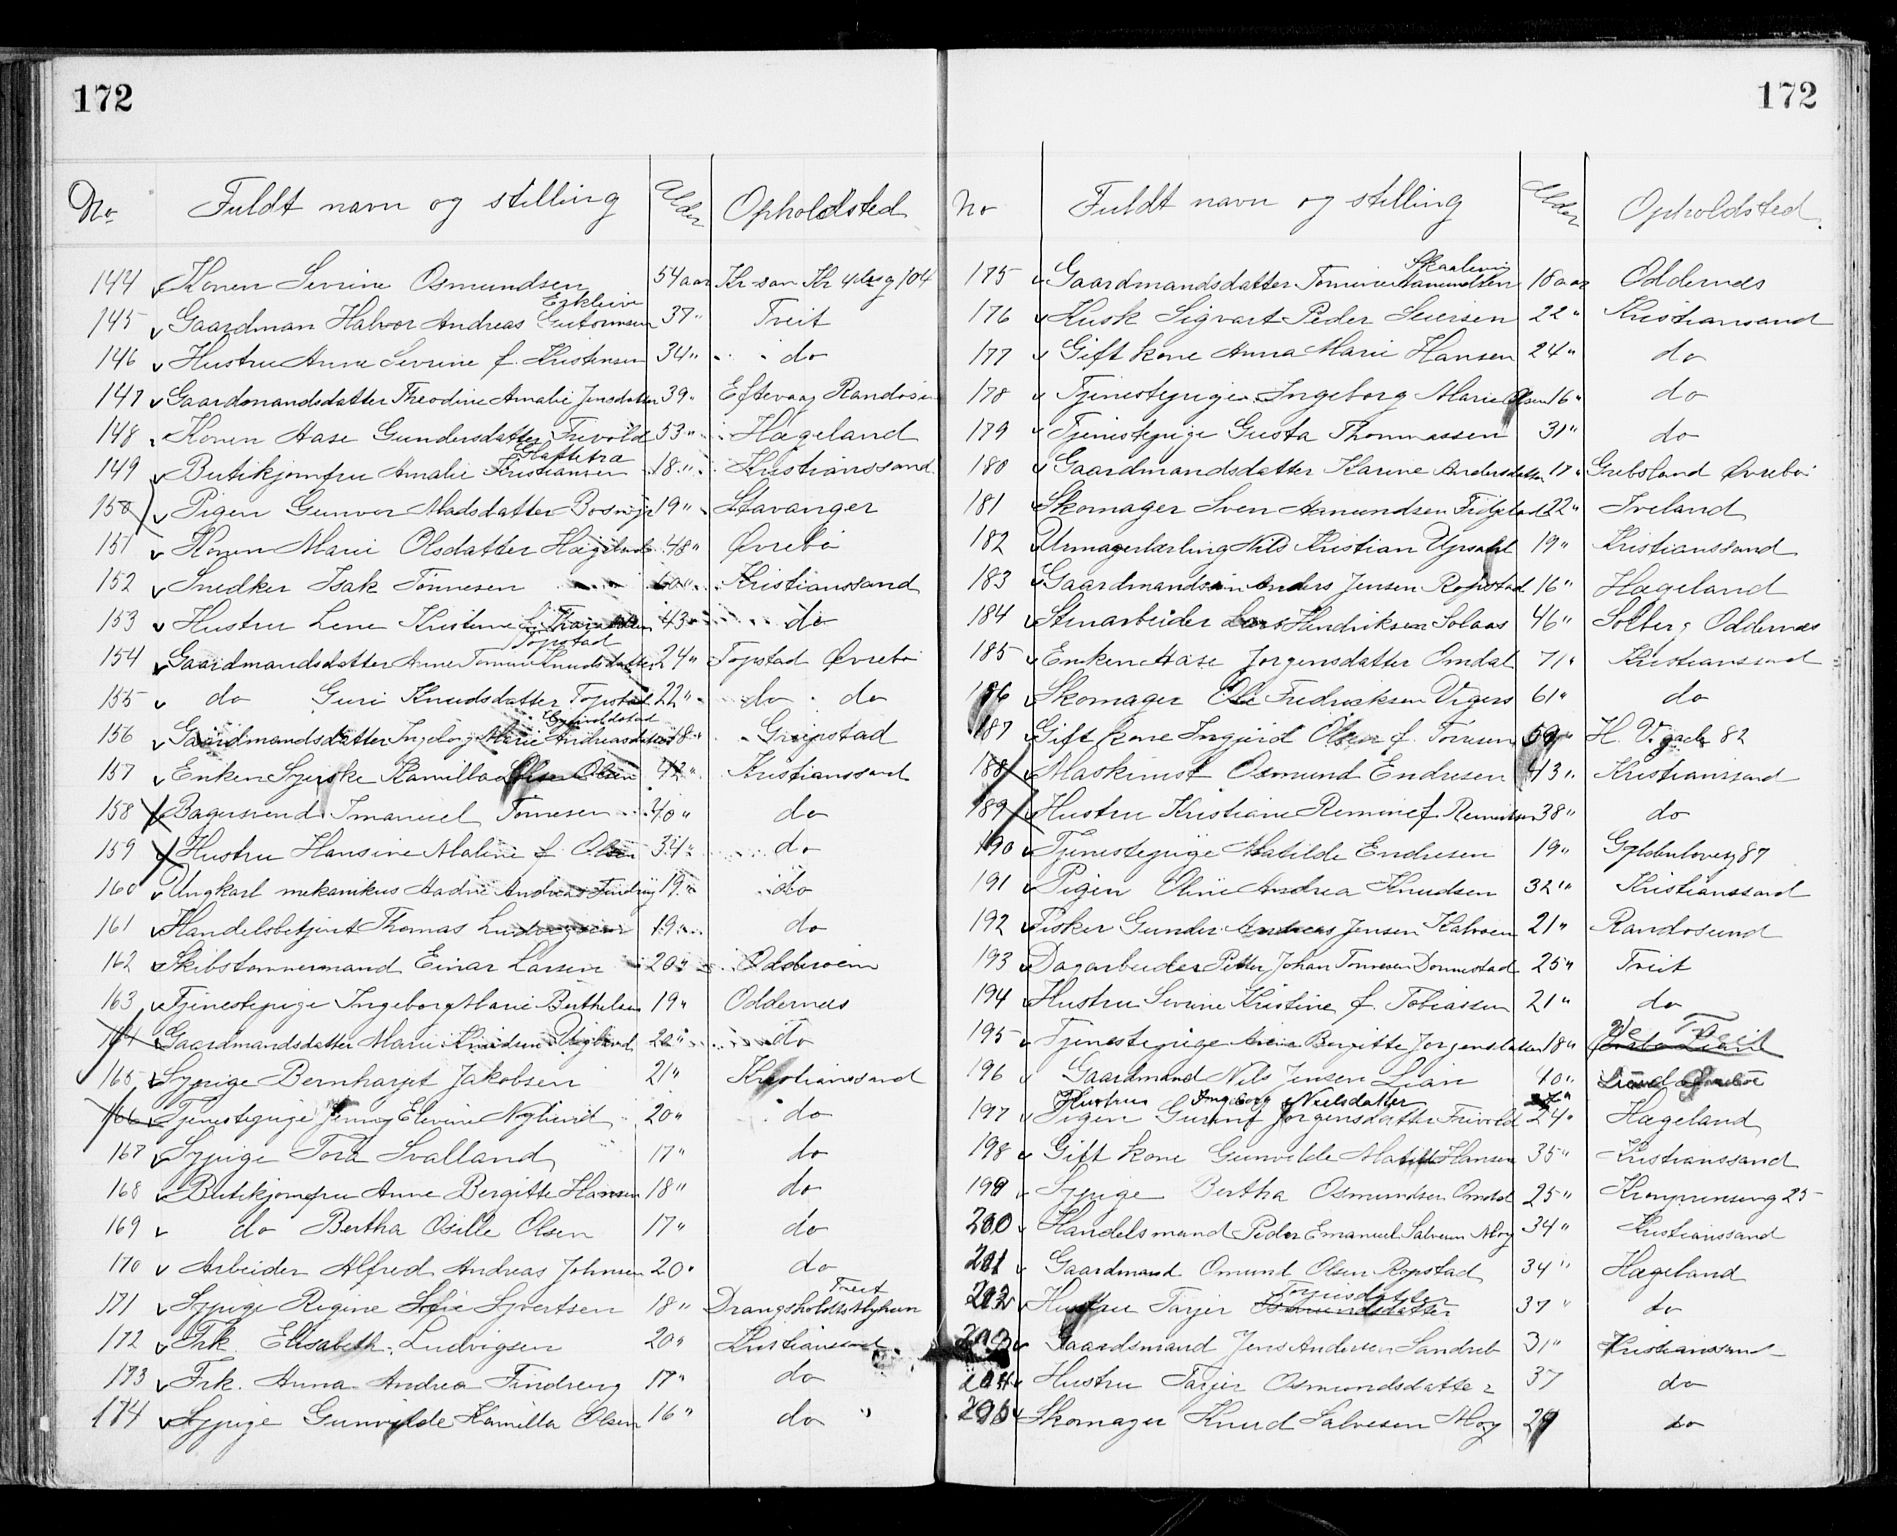 172
No. Fuldt navn og stilling Alder Opholdsted
144 Konen Sevrine Osmundsen 54 aar Kr.san Kr 104
Erkleiv
145 Gaardman Halvor Andreas Gutormsen 37" Tveit
146 Hustru Anne Sevrine f. Kristensen 34" do
147 Gaardmandsdatter Theodine Amalie Jensdatter 39" Eftevaag Randøsun
148 Konen Aase Gundersdatter Frivold 53" Hægeland
149 Butikjomfru Amalie Kristiansen 18" Kristianssand
150 Pigen Gunvor Madsdatter Bosvig 19" Stavanger
151 Konen Marie Olsdatter Hægeland 48" Øvrebø
152 Snedker Isak Tönnesen 60" Kristianssand
153 Hustru Lene Kristine f. 43" do
Topstad
154 Gaardmandsdatter Anne Tomine Knudsdatter 24" Topstad Øvrebø
155 do Guri Knudsdatter Topstad 22" do do
156 Gaardmandsdatter Ingeborg Marie Andreasdatter 18" Greipstad
157 Enken Syerske Kamilla Olsen 42" Kristianssand
158 Bagersvend Imanuel Tönnesen 40" do
159 Hustru Hansine Maline f. Olsen 34" do
160 Ungkarl mekanikus Andreas 19" do
161 Handelsbetjent Thomas 19" do
162 Skibstømmermand Einar Larsen 20" Odderøen
163 Tjenestepige Ingeborg Marie Berthelsen 19" Oddernæs
164 Gaardmandsdatter Marie Knudsen 20" do
165 Sypige Bernhargt Jakobsen 21" Kristianssand
166 Tjenestepige Jenny Elevine Nylund 20" do
167 Sypige Tora Svalland 17" do
168 Butikjomfru Anne Bergitte Hansen 18" do
169 do Bertha Osille Olsen 17" do
170 Arbeider Alfred Andreas Johnsen 20" do
Tveit
171 Sypige Regine Sofie Syvertsen 18" Drangsholdts Myhren
172 Frk. Elisabeth Ludvigsen 20" Kristianssand
173 Frk. Anna Andrea Findreng 17" do
174 Sypige Gunvilde Kamilla Olsen 16" do "
172
No Fuldt navn og stilling Alder Opholdsted.
Skaaleviк
175 Gaardmandsdatter Tomine Aanundsen 18 aar Oddernæs
176 Kusk Sigvart Peder Seversen 22" Kristianssand
177 Gift kone Anna Marie Hansen 24" do
178 Tjenestepige Ingeborg Marie Olsen 16" do
179 Tjenestepige Gusta Thomassen 31" do
180 Gaardmandsdatter Karine Andersdatter 17" Grebsland Øvrebø
181 Skomager Sven Aanundsen 22" Iveland
182 Urmagerlærling Nils Kristian Upsahl 19" Kristianssand
183 Gaardmandsøn Anders Jensen Ropstad 16" Hægeland
184 Stenarbeider Lars Hendriksen Solaas 46" Solberg Oddernæs
185 Enken Aase Jørgensdatter Omdal 71" Kristianssand
186 Skomager Ole Fredriksen Vigers 61" do
187 Gift kone Ingerid Olsen f. Tonesen 59" H. V. gade 82
188 Maskinist Osmund Endresen 43" Kristianssand
189 Hustru Kristiane Remine f. Reinertsen 38" do
190 Tjenestepige Matilde Endresen 19" Gyldenløvesg 87
191 Pigen Oline Andrea Knudsen 32" Kristianssand
192 Fisker Gunder Andreas Jensen Kalvøen 21" Randøsund
193 Dagarbeider Petter Johan Tønnesen Donnestad 25" Tveit
194 Hustru Sevrine Kristine f. Tobiassen 21" do
195 Tjenestepige Bergitte Jørgensdatter 18" Tveit
196 Gaardmand Nils Jensen Lian 40"
Hustru Ingeborg Nielsdatter
197 Pigen Gunnf Jørgensdatter Frivold 24" Hægeland
198 Gift kone Gunvilde Matilde Hansen 35" Kristianssand
199 Sypige Bertha Osmundsen Omdal 25" Kronprinseng 25
200 Handelsmand Peder Emanuel Salvesen Moy 34" Kristianssand
201 Gaardmand Omund Olsen Ropstad 34" Hægeland
202 Hustru Tarjer Osmundsdatter 37" do
203 Gaardsmand Jens Andersen Sandreb 31" Kristianssand
204 Hustru Tarjer Osmundsdatter 37 do
205 Skomager Knud Salvesen Moy 29 do